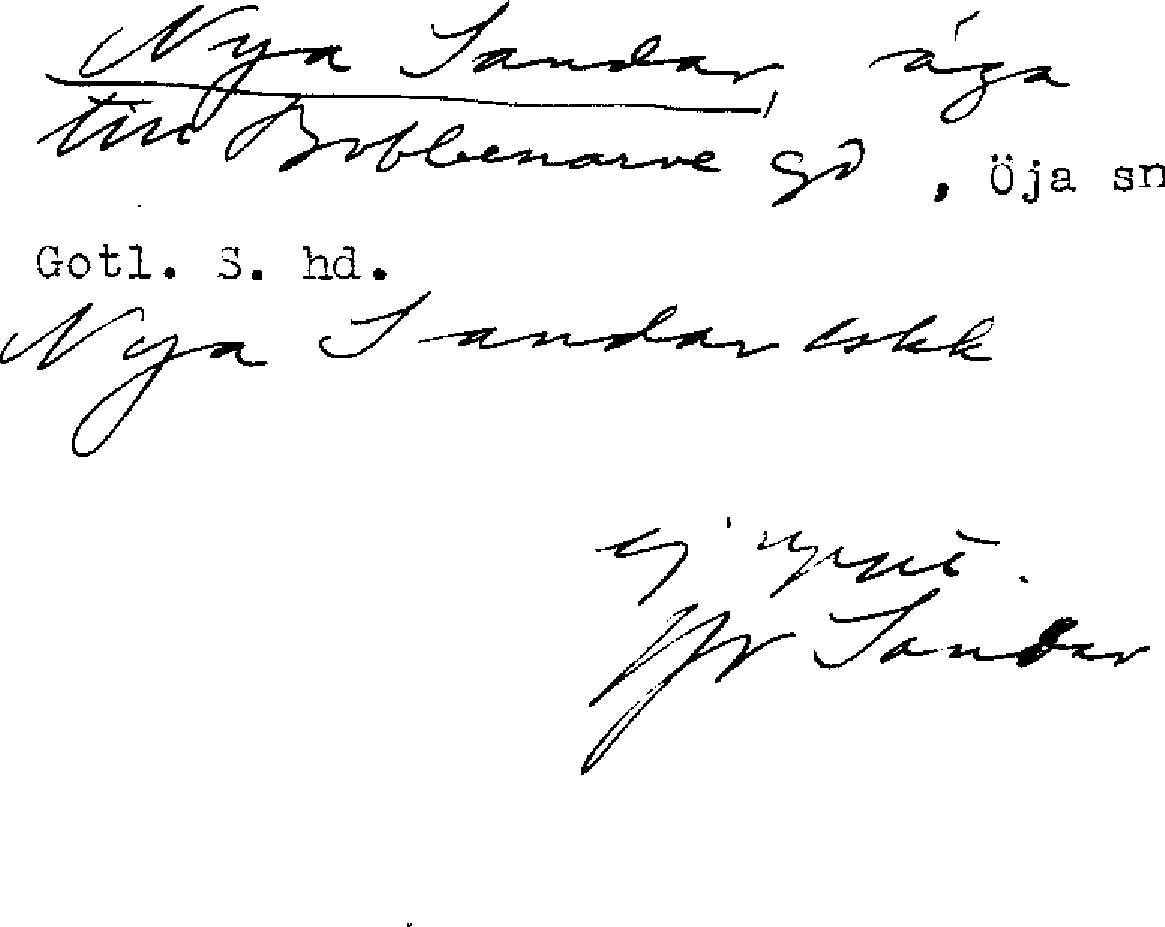 Nya Sandar, äga
till Bobbenarve gd, Öja sn
Gotl. S. hd.
Nya Sandar
ej
Jfr Sandar